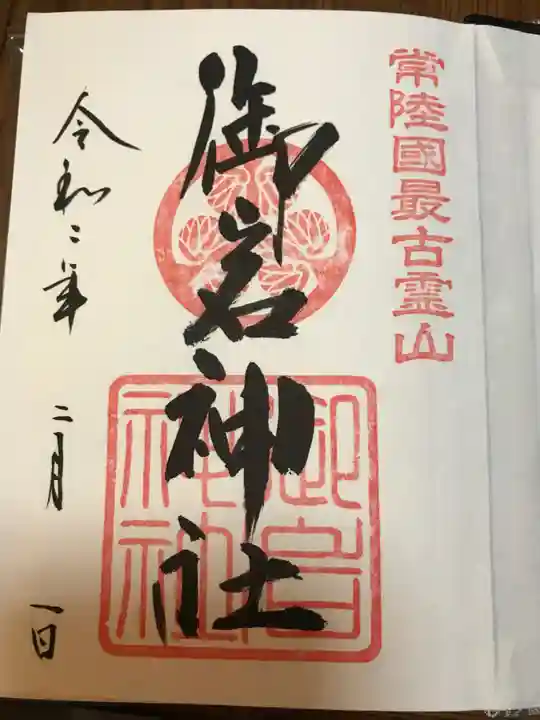 常陸國最古霊山
御岩神社
御岩神社
令和二年
二月
一日